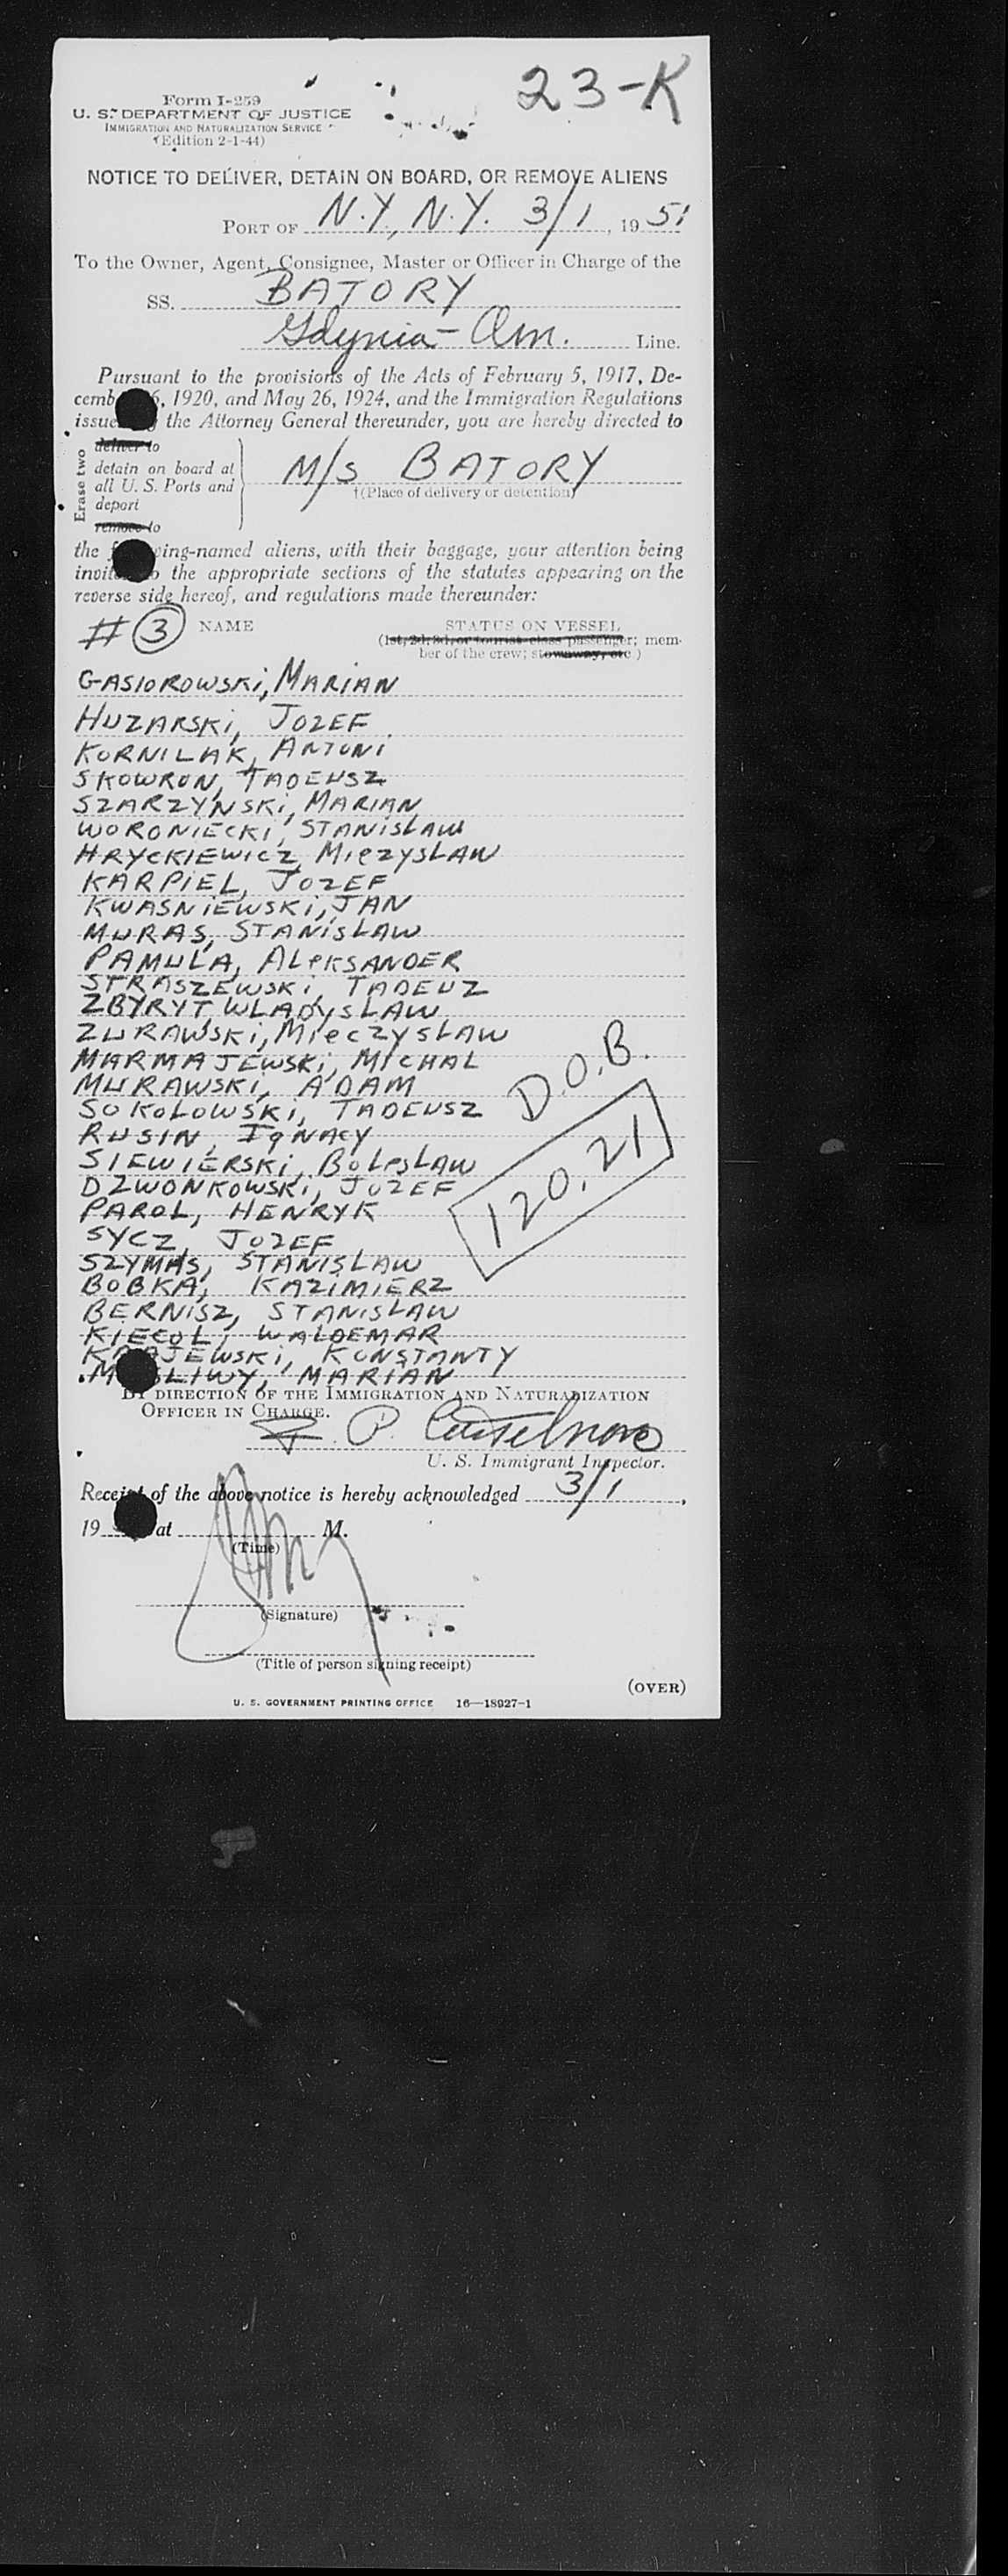 23-K
Form I-259
U. S. DEPARTMENT OF JUSTICE
IMMIGRATION AND NATURALIZATION SERVICE
(Edition 2-1-44)
NOTICE TO DELIVER, DETAIN ON BOARD, OR REMOVE ALIENS
PORT OF N.Y., N.Y. 3/1, 1951
To the Owner, Agent, Consignee, Master or Officer in Charge of the
SS. BATORY
Gdynia-Am. Line.
Pursuant to the provisions of the Acts of February 5, 1917, De-
6, 1920, and May 26, 1924, and the Immigration Regulations
the Attorney General thereunder, you are hereby directed to
Erase two
deliver to
detain on board at
all U. S. Ports and
deport
remove to
M/S BATORY
†(Place of delivery or detention)
the aliens, with their baggage, your attention being
the appropriate sections of the statutes appearing on the
reverse side hereof, and regulations made thereunder:
#3 NAME STATUS ON VESSEL
(1st, 2d, 3d, or tourist class passenger; mem-
ber of the crew; stowaway, etc.)
GASIOROWSKI, MARIAN
HUZARSKI, JOZEF
KORNILAK, ANTONI
SKOWRON, TADEUSZ
SZARZYNSKI, MARIAN
WORONIECKI, STANISLAW
HRYCKIEWICZ, MIECZYSLAW
KARPIEL, JOZEF
KWASNIEWSKI, JAN
MURAS, STANISLAW
PAMULA, ALEKSANDER
STRASZEWSKI TADEUZ
ZBYRYT WLADYSLAW
ZURAWSKI, MIECZYSLAW
MARMAJEWSKI, MICHAL
MURAWSKI, ADAM
SOKOLOWSKI, TADEUSZ
RUSIN, IGNACY
SIEWIERSKI, BOLESLAW
DZWONKOWSKI, JOZEF
PAROL, HENRYK
SYCZ, JOZEF
SZYMAS, STANISLAW
BOBKA, KAZIMIERZ
BERNISZ, STANISLAW
KIECOL, WALDEMAR
KRAJEWSKI, KONSTANTY
MARIAN
D.O.B.
120.21
BY DIRECTION OF THE IMMIGRATION AND NATURALIZATION
OFFICER IN CHARGE.
P.
U. S. Immigrant Inspector.
Receipt of the above notice is hereby acknowledged 3/1,
19 at M.
(Time)
(Signature)
(Title of person signing receipt)
(OVER)
U. S. GOVERNMENT PRINTING OFFICE 16—18927-1